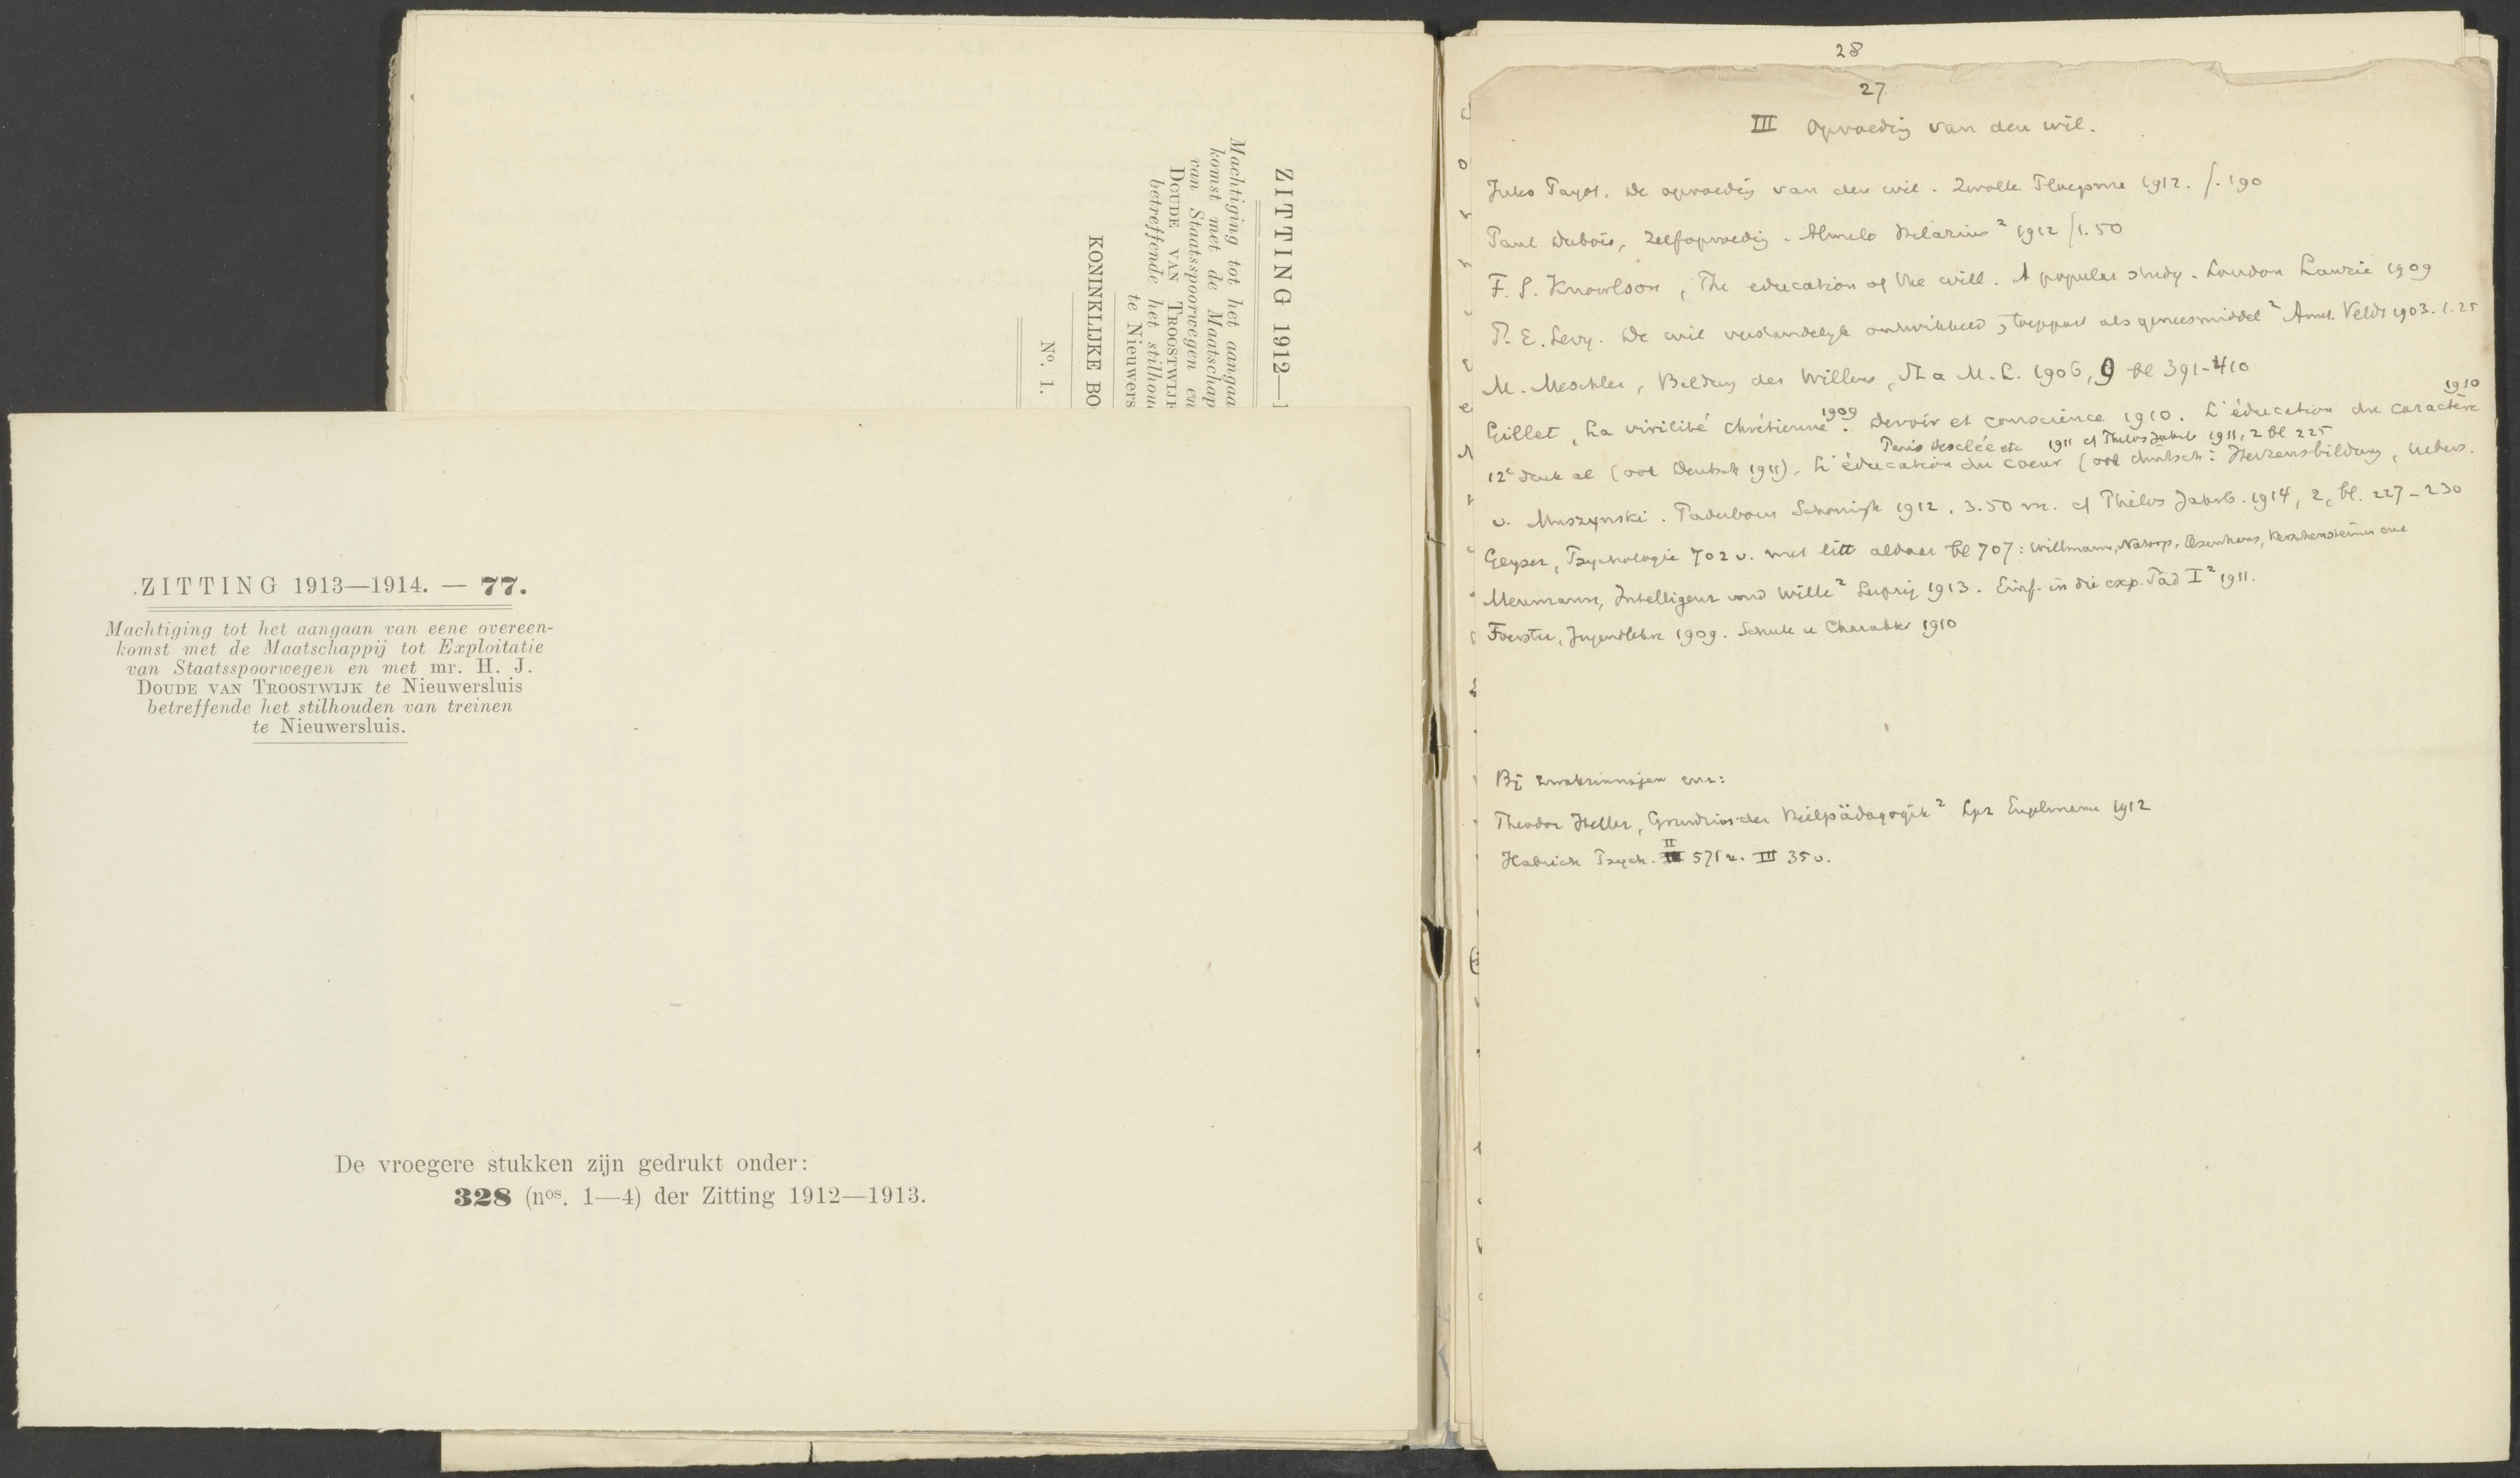 ZITTING 1912—1
Machtiging tot het aangaa
komst met de Maatschap
van Staatsspoorwegen en
DOUDE VAN TROOSTWIJK
betreffende het stilhoud
te Nieuwers
KONINKLIJKE BO
No. 1.
ZITTING 1913—1914. — 77.
Machtiging tot het aangaan van eene overeen-
komst met de Maatschappij tot Exploitatie
van Staatsspoorwegen en met mr. H. J.
DOUDE VAN TROOSTWIJK te Nieuwersluis
betreffende het stilhouden van treinen
te Nieuwersluis.
De vroegere stukken zijn gedrukt onder:
328 (nos. 1—4) der Zitting 1912—1913.
28
27
III Opvoeding van den wil.
Jules Payot. De opvoeding van den wil. Zwolle Ploegsma 1912. f. 190
Paul Dubois, Zelfopvoeding. Almelo Hilarius ² 1912 f 1.50
F. S. Knowlson, The education of the will. A popular study. London Laurie 1909
P. E. Levy. De wil verstandelijk ontwikkeld, toegepast als geneesmiddel ² Amst. Veldt 1903. 1.25
M. Meschler, Bildung des Willens, St a M. L. 1906, 9 bl 391-410
Gillet, La virilité chrétienne 1909. Devoir et conscience 1910. L'éducation du caractère 1910
Paris Desclée etc 1911 cf Philos Jahrb 1911, 2 bl 225
12e druk al (ook Deutsch 1911). L'éducation du coeur (ook duitsch: Herzensbildung, uebers.
v. Muszynski. Paderborn Schöningh 1912. 3.50 m. cf Philos Jahrb. 1914, 2, bl. 227-230
Geyser, Psychologie 702 v. met litt aldaar bl 707: Willmann, Natorp, Elsenhans, Kerschensteiner enz
Meumann, Intelligenz und Wille ² Leipzig 1913. Einf. in die exp. Päd I ² 1911.
Foerster, Jugendlehre 1909. Schule u Charakter 1910
Bij zwakzinnigen enz:
Theodor Heller, Grundriss der Heilpädagogik ² Lpz Engelmann 1912
Habrich Psych. II 571 v. III 35 v.